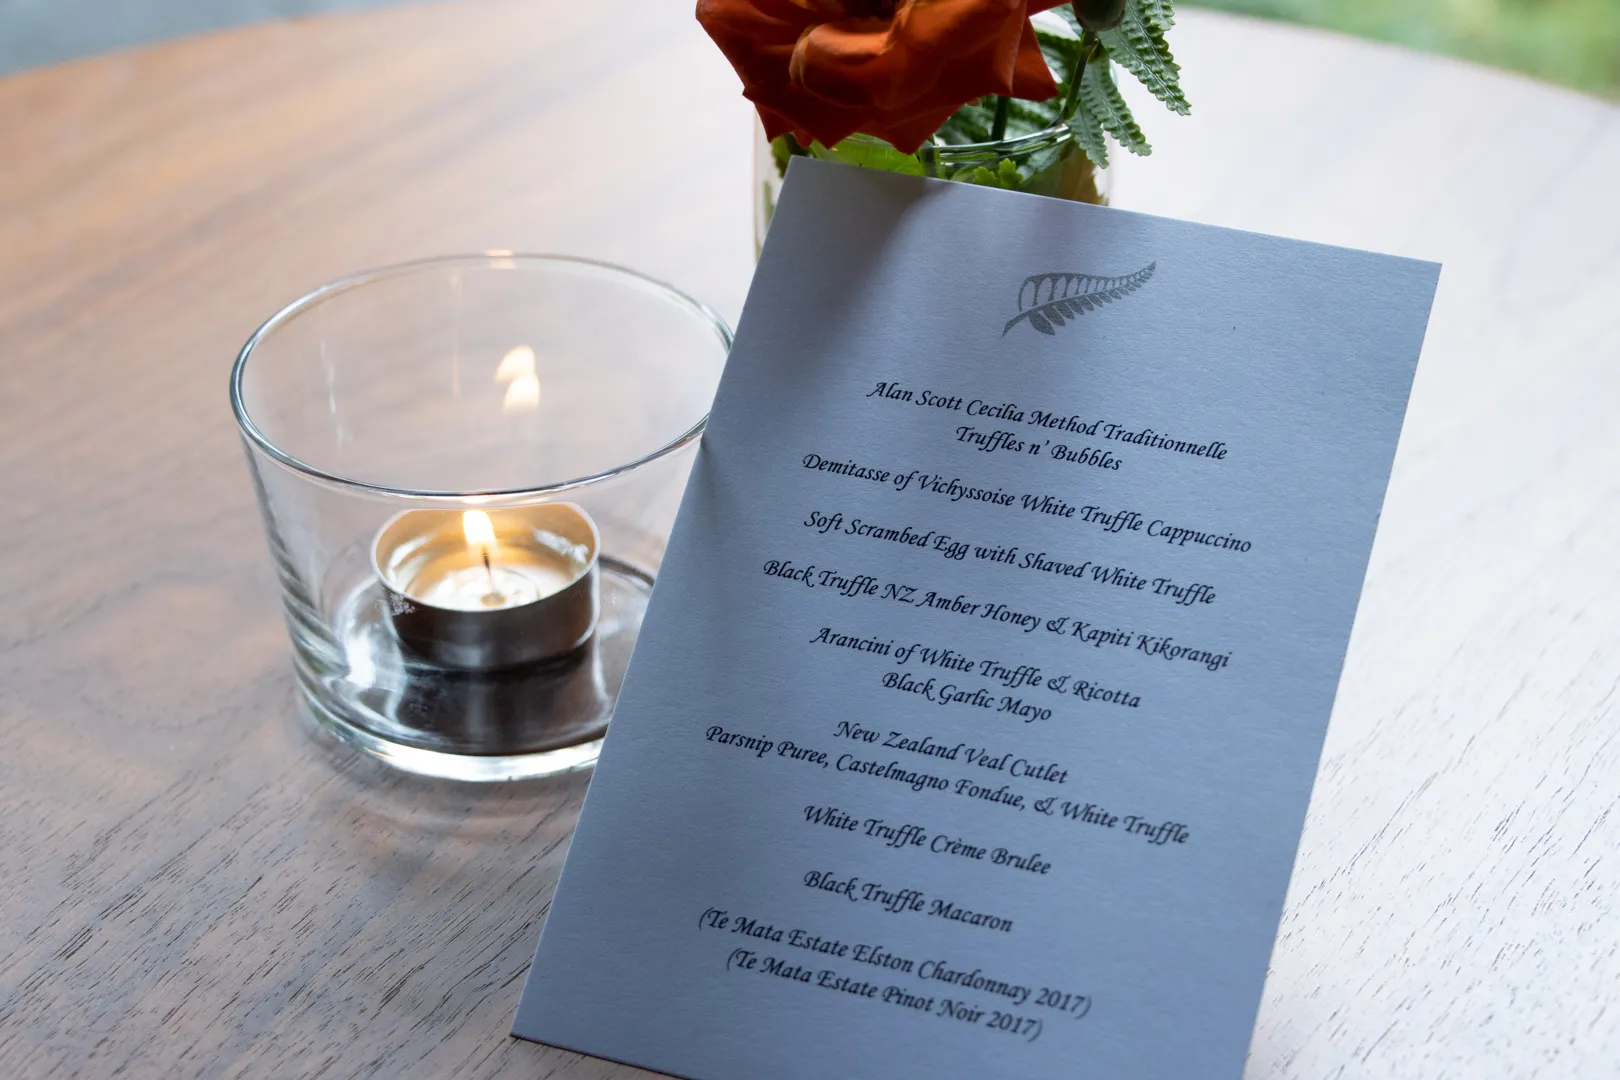 Alan Scott Cecilia Method Traditionnelle
Truffles n' Bubbles
Demitasse of Vichyssoise White Truffle Cappuccino
Soft Scrambed Egg with Shaved White Truffle
Black Truffle NZ Amber Honey & Kapiti Kikorangi
Arancini of White Truffle & Ricotta
Black Garlic Mayo
New Zealand Veal Cutlet
Parsnip Puree, Castelmagno Fondue, & White Truffle
White Truffle Crème Brulee
Black Truffle Macaron
(Te Mata Estate Elston Chardonnay 2017)
(Te Mata Estate Pinot Noir 2017)